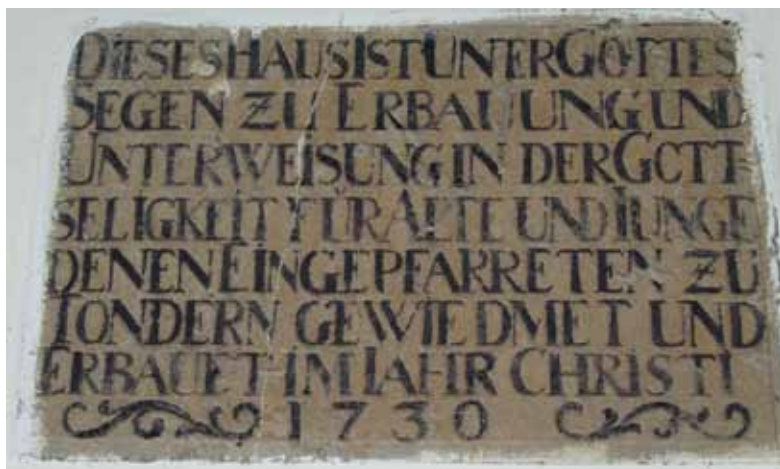 DIESES HAUS IST UNTER GOTTES
SEGEN ZU ERBAUUNG UND
UNTERWEISUNG IN DER GOTT-
SELIGKEIT FÜR ALTE UND IUNGE
DENEN EINGEPFARRETEN ZU
TONDERN GEWIEDMET UND
ERBAUET IM IAHR CHRISTI
1730